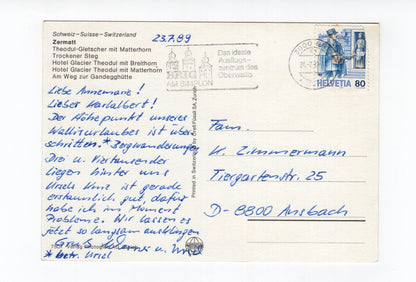 Schweiz-Suisse-Switzerland
Zermatt
Theodul-Gletscher mit Matterhorn
Trockener Steg
Hotel Glacier Theodul mit Breithorn
Hotel Glacier Theodul mit Matterhorn
Am Weg zur Gandegghütte
23.7.89
Liebe Annemarie!
Lieber Karlalbert!
Der Höhepunkt unseres
Wallisurlaubes ist über-
schritten.* Bergwanderungen
Drei u. Viertausender
liegen hinter uns
Ursels Knie ist gerade
erstaunlich gut, dafür
habe ich im Moment
Probleme. Wir lassen es
jetzt so langsam ausklingen
Gruß Werner u. Ursel
* betr. Ursel
AM SIMPLON
Das ideale
Ausflugs-
zentrum des
Oberwallis
HELVETIA 80
Fam.
K. Zimmermann
Tiergartenstr. 25
D-8800 Ansbach